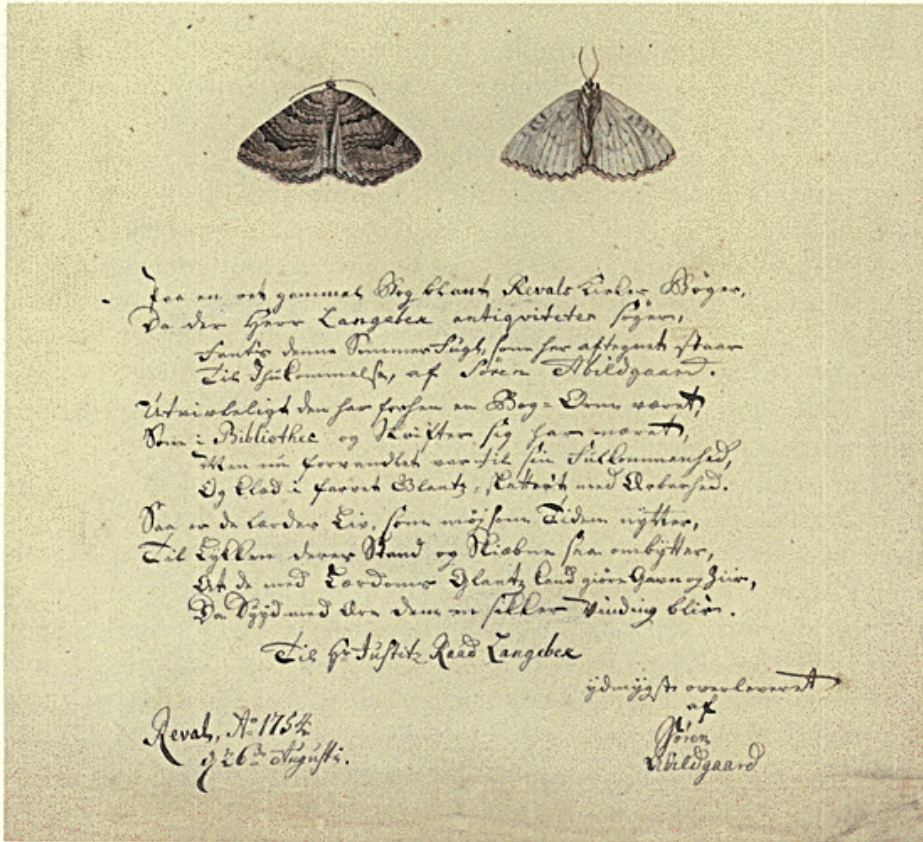 Paa en ret gammel Bog blant Revals Kirkes Bøger,
Da der Herr Langebek antiqviteter søger,
Fantis denne Sommer Fugl, som her aftegnet staar
Til Ihukommelse, af Søren Abildgaard.
Utvivleligt den har forhen en Boge-Orm været,
Som i Bibliothec og Skrifter sig har næret,
Men nu forvandlet var til sin Fulkommenhed,
Og klæd i farvet Glantz, med Ærbarhed.
Saa er de Lærdes Liv, som Tiden nytter,
Til Lykken deres Stand og Skiæbne saa ombytter,
At de med Lærdoms Glantz kand giøre Gavn og Ziir,
Da Spiid med Ære dem en sikker Vinding bliir.
Til Hr Justitz Raad Langebek
ydmygst overleveret
af
Søren
Abildgaard
Reval, Ao 1754
d 26 Augusti.